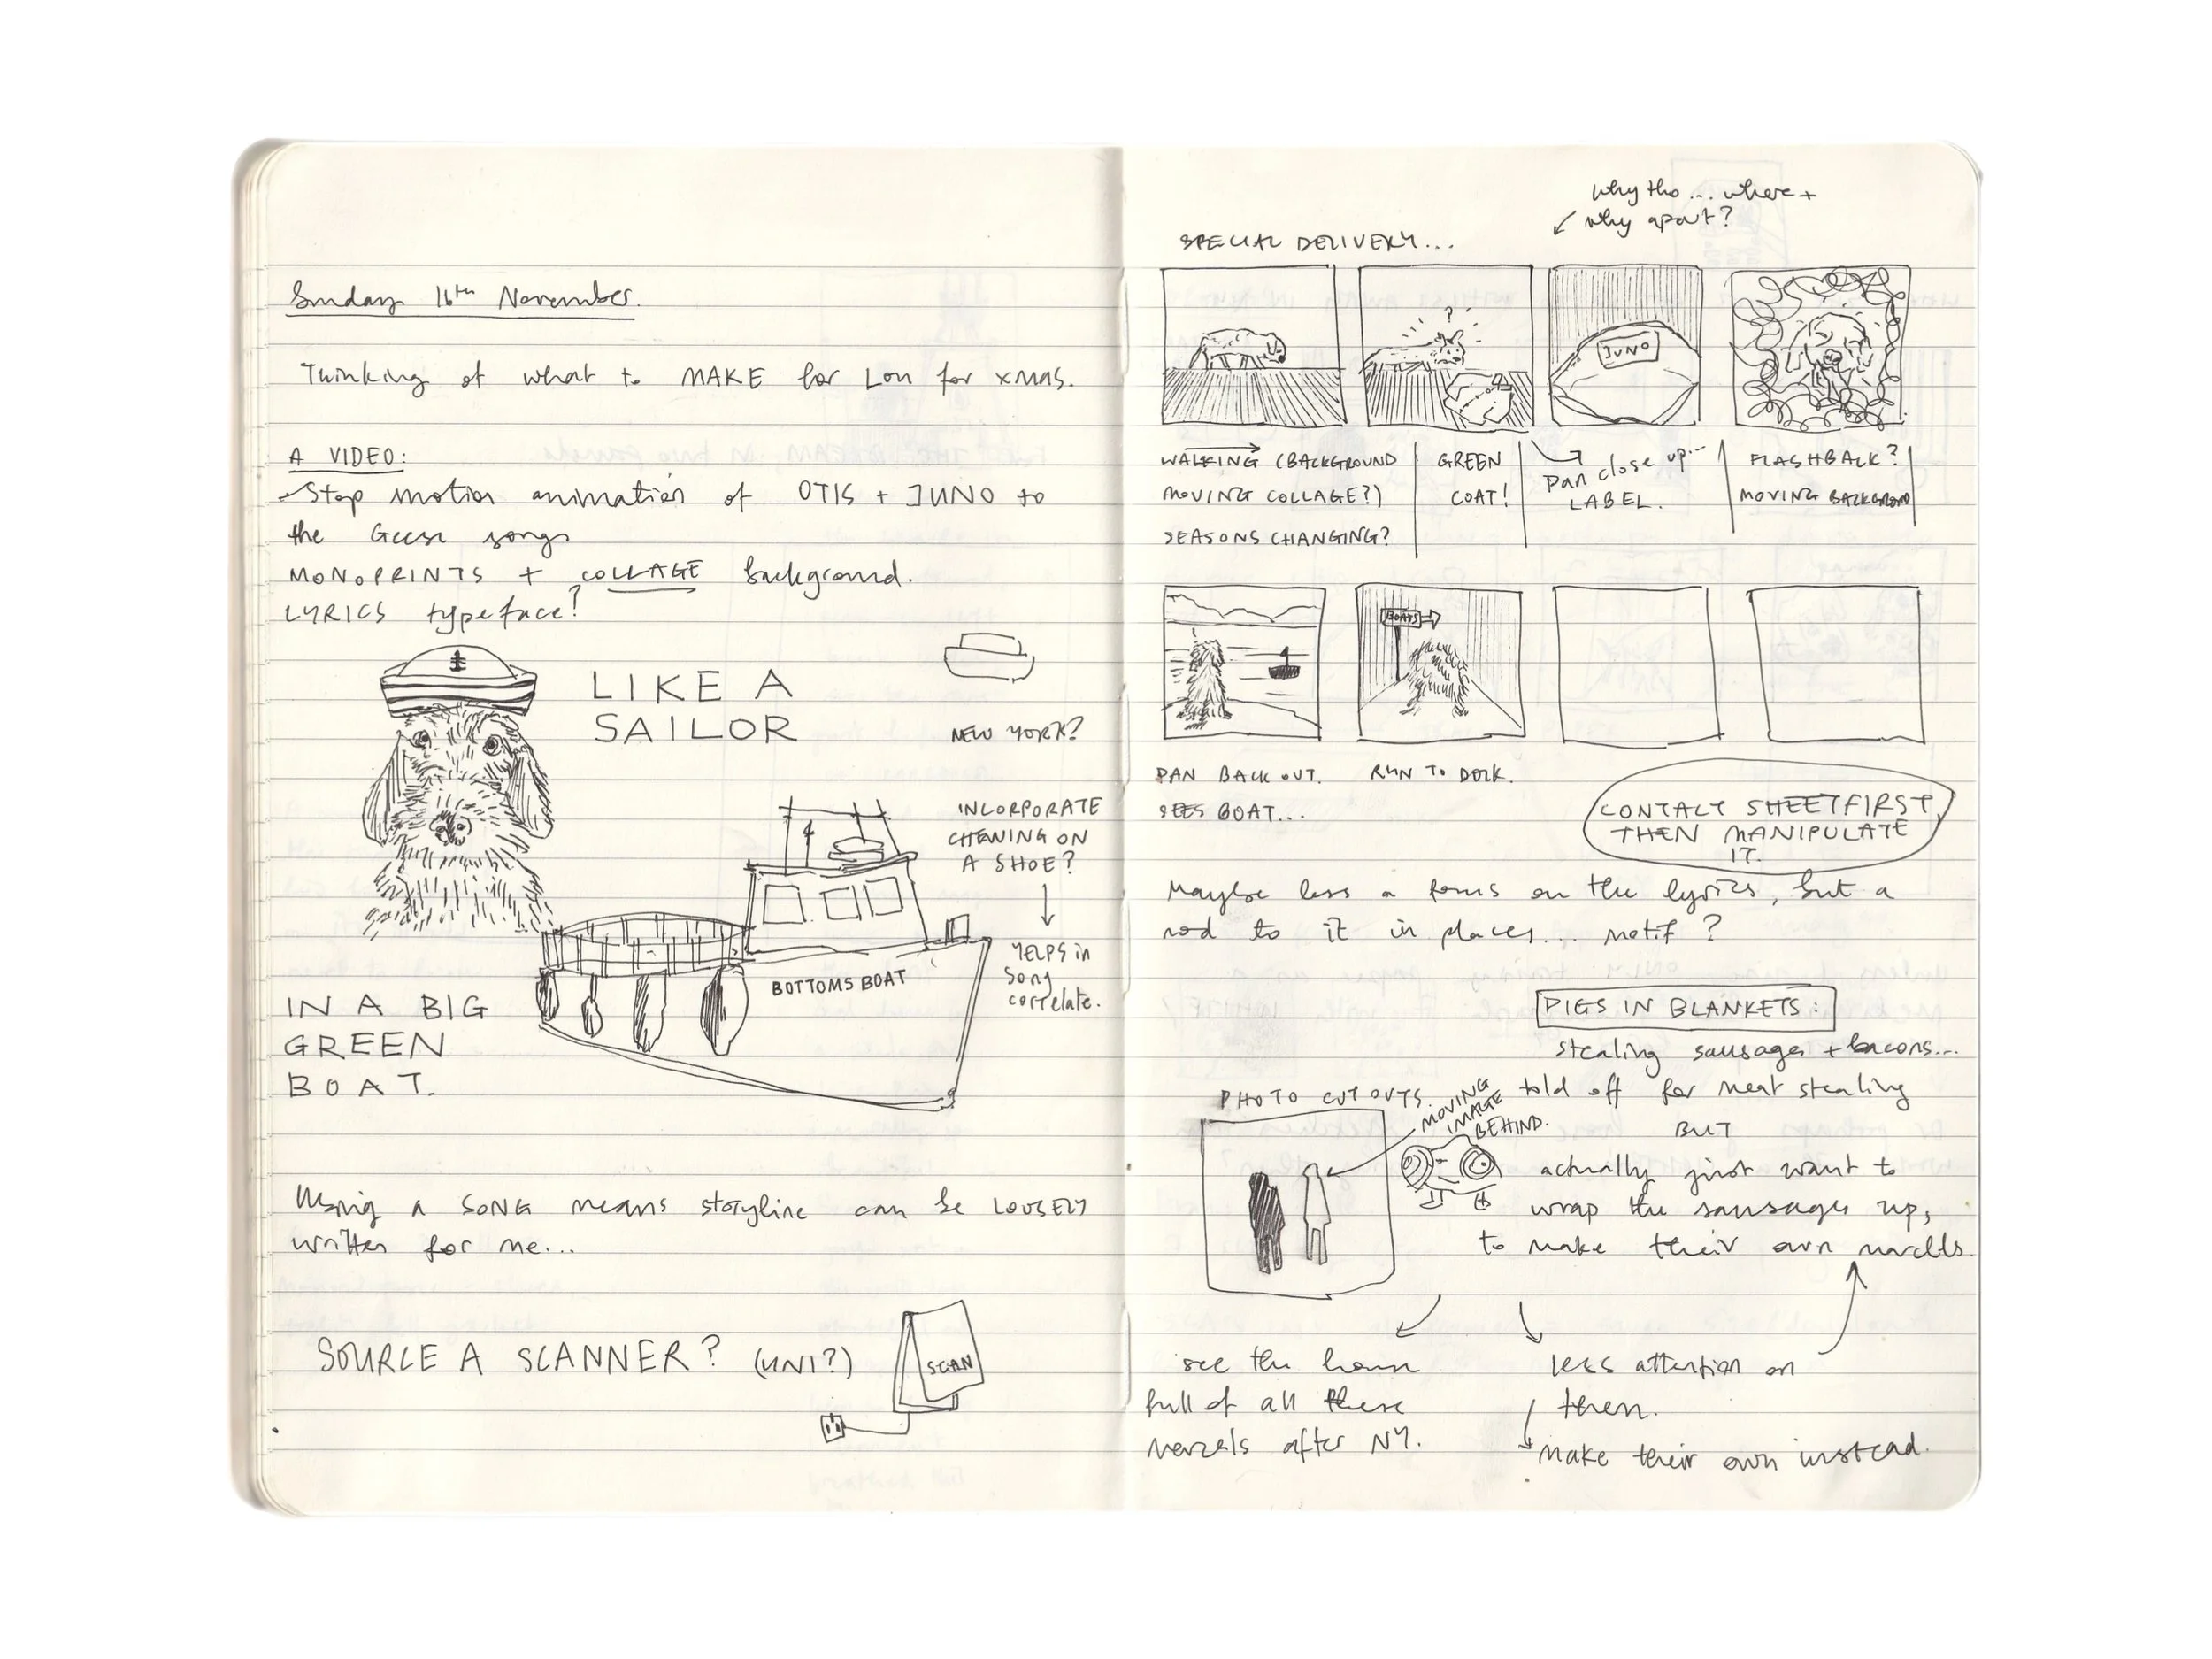 Sunday 16th November.
Thinking of what to MAKE for Lou for xmas.
A VIDEO:
- Stop motion animation of OTIS + JUNO to
the Geese songs
MONOPRINTS + COLLAGE background.
LYRICS typeface?
LIKE A
SAILOR
NEW YORK?
INCORPORATE
CHEWING ON
A SHOE?
YELPS in
song
correlate.
BOTTOMS BOAT
IN A BIG
GREEN
BOAT.
Using a SONG means storyline can be LOOSELY
written for me...
SOURCE A SCANNER? (UNI?)
SCAN
why tho... where +
why apart?
SPECIAL DELIVERY...
?
JUNO
WALKING (BACKGROUND
MOVING COLLAGE?)
SEASONS CHANGING?
GREEN
COAT!
Pan close up...
LABEL.
FLASHBACK?
MOVING BACKGROUND
BOATS
PAN BACK OUT.
SEES BOAT...
RUN TO DOCK.
CONTACT SHEET FIRST,
THEN MANIPULATE
IT.
Maybe less a focus on the lyrics, but a
nod to it in places... motif?
PIGS IN BLANKETS:
stealing sausages + bacons...
told off for meat stealing
BUT
actually just want to
wrap the sausages up,
to make their own
PHOTO CUT OUTS.
MOVING
IMAGE
BEHIND.
see the house
full of all these
after NY.
less attention on
them.
make their own instead.